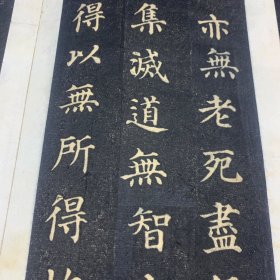 亦無老死盡
集滅道無智
得以無所得